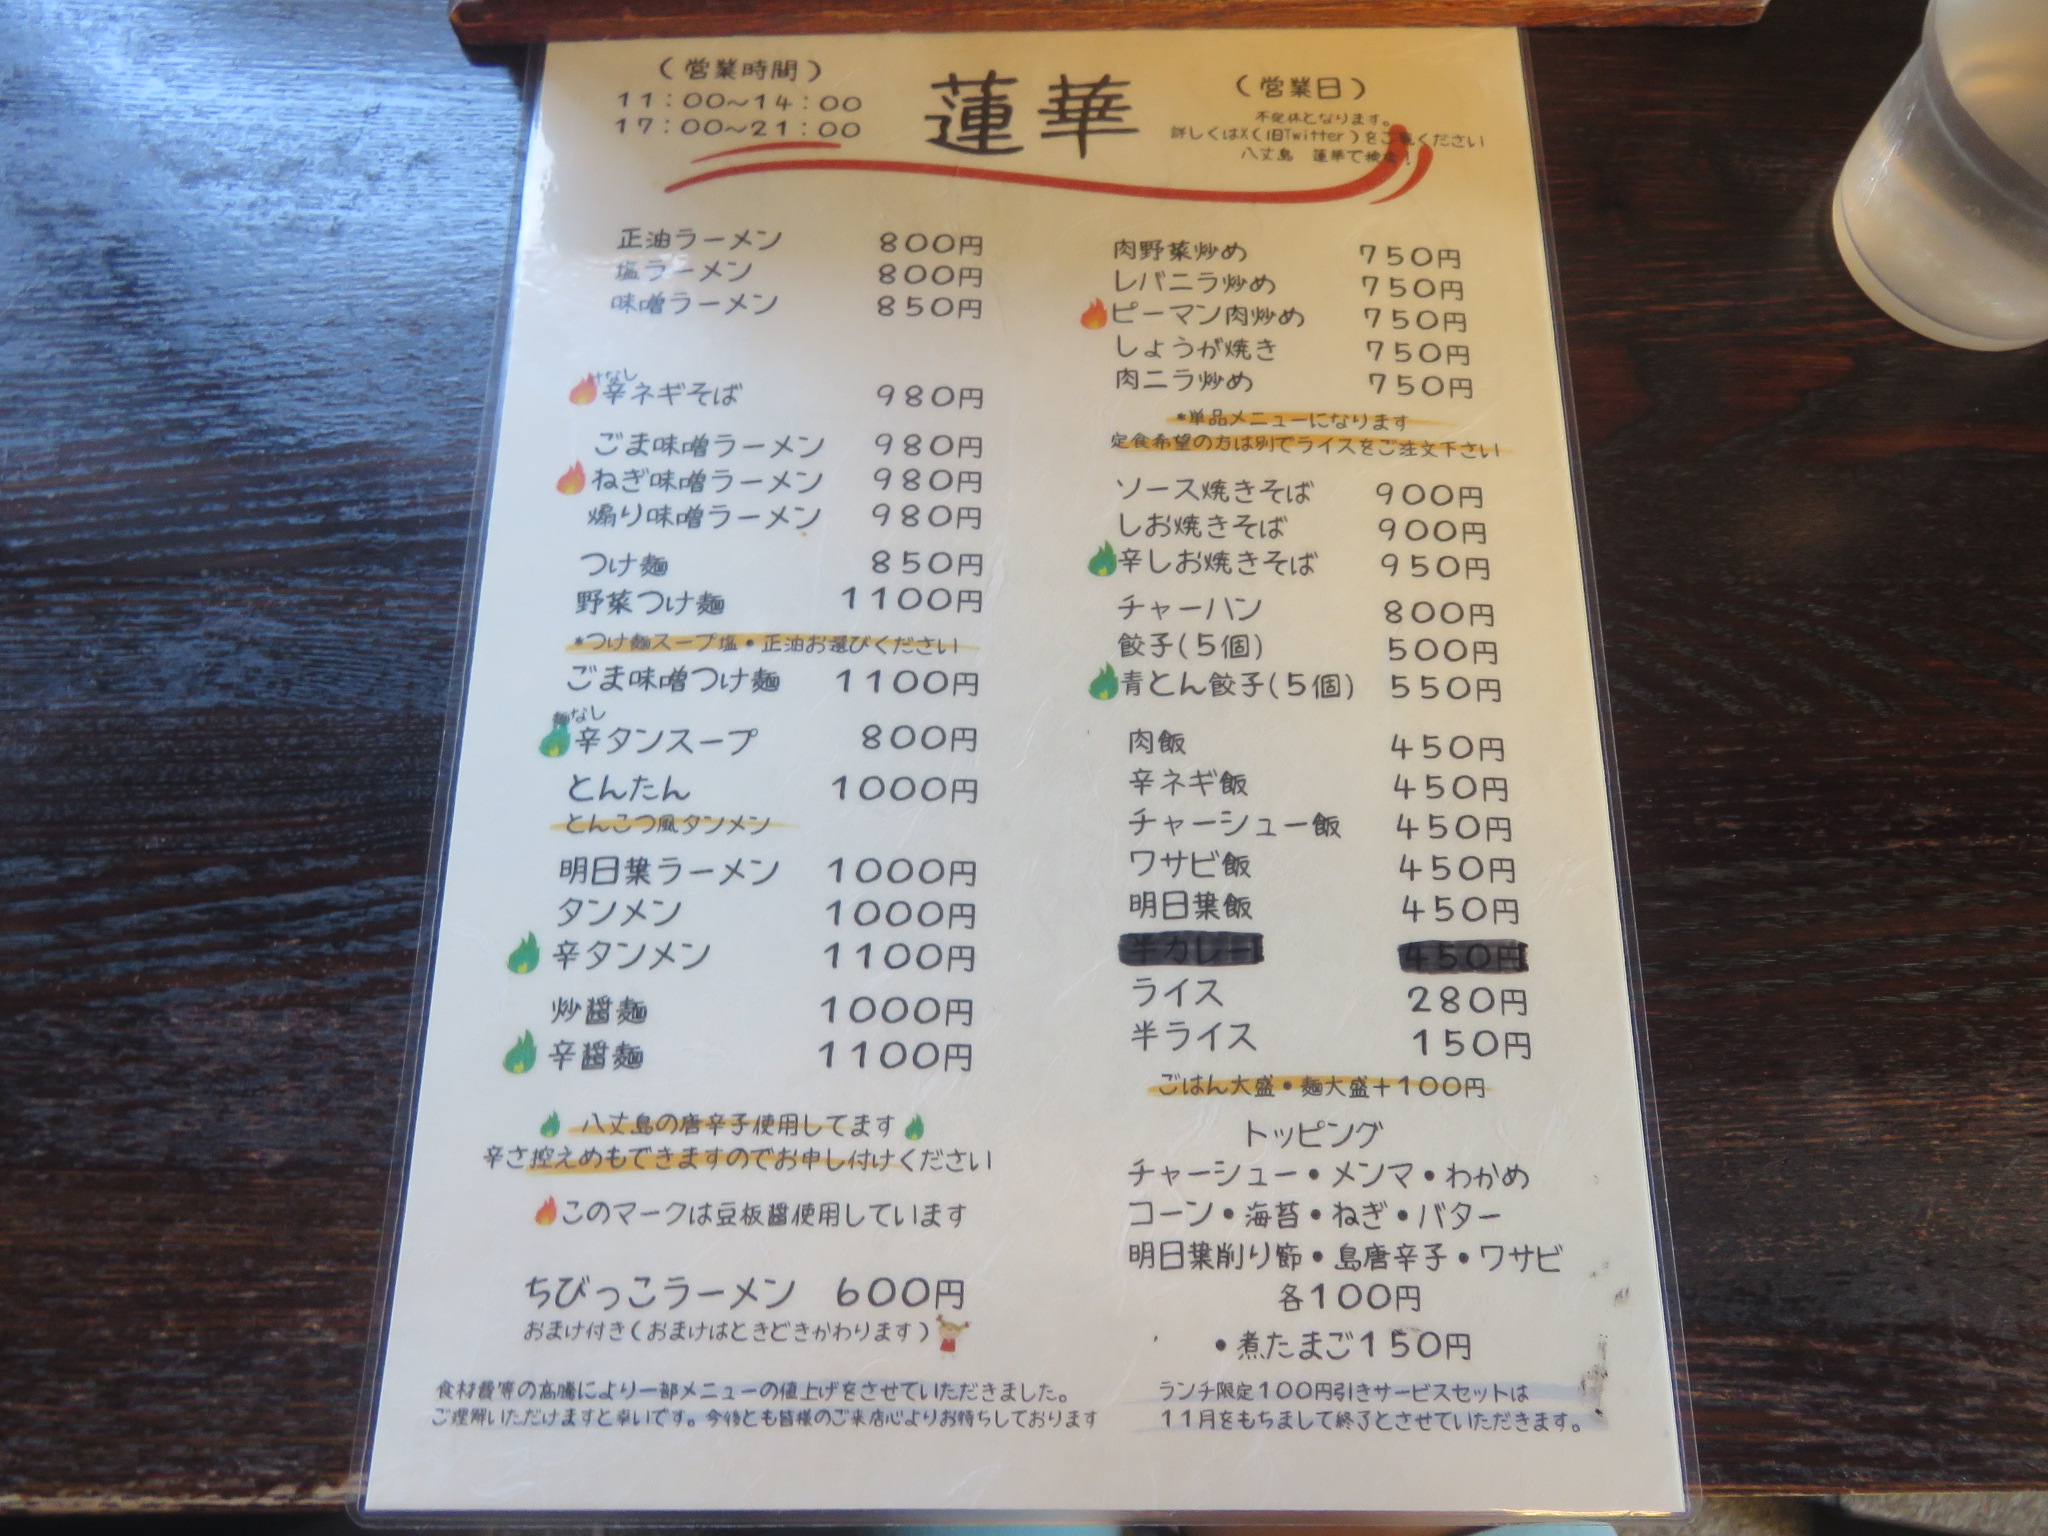 (営業時間)
11:00~14:00
17:00~21:00
蓮華
(営業日)
不定休となります。
詳しくはX(旧Twitter)をご覧ください
八丈島 蓮華で検索!
正油ラーメン 800円
塩ラーメン 800円
味噌ラーメン 850円
汁なし
辛ネギそば 980円
ごま味噌ラーメン 980円
ねぎ味噌ラーメン 980円
煽り味噌ラーメン 980円
つけ麺 850円
野菜つけ麺 1100円
*つけ麺スープ塩・正油お選びください
ごま味噌つけ麺 1100円
麺なし
辛タンスープ 800円
とんたん 1000円
とんこつ風タンメン
明日葉ラーメン 1000円
タンメン 1000円
辛タンメン 1100円
炒醤麺 1000円
辛醤麺 1100円
八丈島の唐辛子使用してます
辛さ控えめもできますのでお申し付けください
このマークは豆板醤使用しています
ちびっこラーメン 600円
おまけ付き(おまけはときどきかわります)
食材費等の高騰により一部メニューの値上げをさせていただきました。
ご理解いただけますと幸いです。今後とも皆様のご来店心よりお待ちしております
肉野菜炒め 750円
レバニラ炒め 750円
ピーマン肉炒め 750円
しょうが焼き 750円
肉ニラ炒め 750円
*単品メニューになります
定食希望の方は別でライスをご注文下さい
ソース焼きそば 900円
しお焼きそば 900円
辛しお焼きそば 950円
チャーハン 800円
餃子(5個) 500円
青とん餃子(5個) 550円
肉飯 450円
辛ネギ飯 450円
チャーシュー飯 450円
ワサビ飯 450円
明日葉飯 450円
半カレー 450円
ライス 280円
半ライス 150円
ごはん大盛・麺大盛+100円
トッピング
チャーシュー・メンマ・わかめ
コーン・海苔・ねぎ・バター
明日葉削り節・島唐辛子・ワサビ
各100円
・煮たまご150円
ランチ限定100円引きサービスセットは
11月をもちまして終了とさせていただきます。